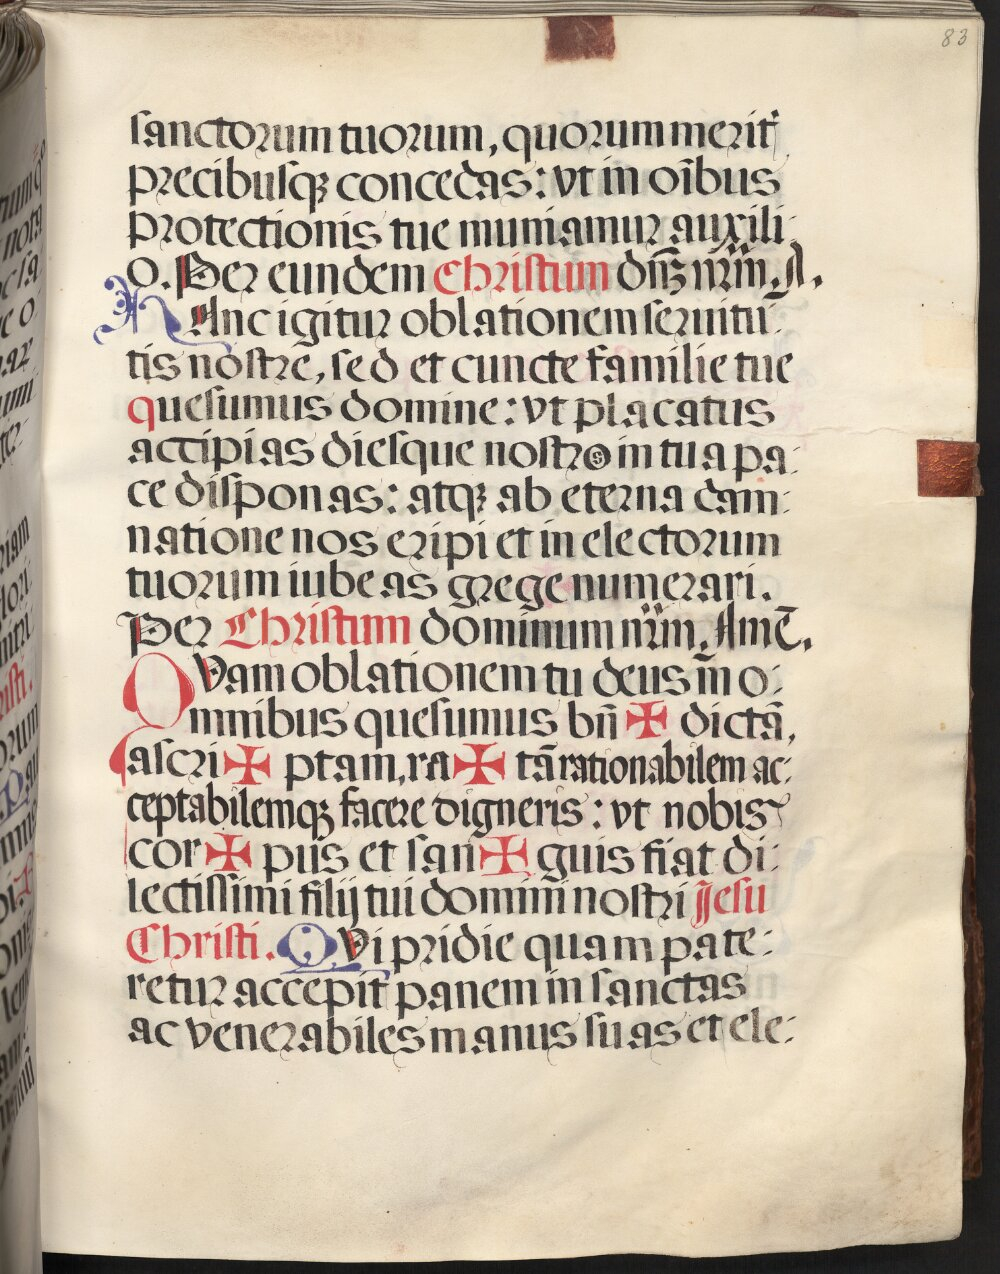 83
sanctorum tuorum, quorum merit᷒
precibusqꝫ concedas: vt in oı̃bus
protectionis tue muniamur auxili:
o. Per eundem Christum dñꝫ nr̃m. A.
HAnc igitur oblationem seruitu:
tis nostre, sed et cuncte familie tue
quesumus domine: vt placatus
accipias diesque nostros in tua pa:
ce disponas: atqꝫ ab eterna dam:
natione nos eripi et in electorum
tuorum iubeas grege numerari.
Per Christum dominum nr̃m. Amẽ.
QVam oblationem tu deus in o:
mnibus quesumus bñ ✠ dictã,
ascri ✠ ptam, ra ✠ tã rationabilem ac:
ceptabilemqꝫ facere digneris: vt nobis
cor ✠ pus et san ✠ guis fiat di:
lectissimi filij tui domini nostri Jesu
Christi. QVi pridie quam pate:
retur accepit panem in sanctas
ac venerabiles manus suas et ele: